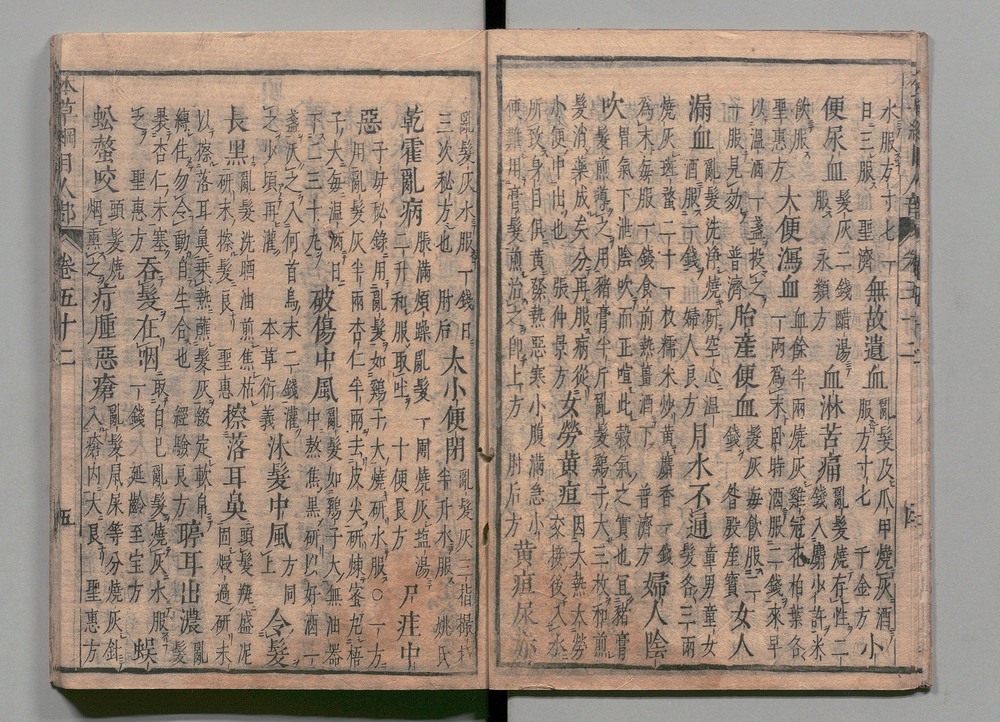 水服方寸七一日三服 聖濟 無故遺血 亂髮及爪甲燒灰酒服方寸七 千金方 小
便尿血 髮灰二錢醋湯服 永類方 血淋苦痛 亂髮燒存性二錢入麝少許米
飲服 聖惠方 大便瀉血 血餘半兩燒灰雞冠花柏葉各一兩為末卧時酒服二錢來早
以溫酒一盞投之一服見効 普濟 胎產便血 髮灰每飲服二錢 昝殷產寶 女人
漏血 亂髮洗淨燒研空心溫酒服一錢 婦人良方 月水不通 童男童女髮各三兩
燒灰斑蝥二十一枚糯米炒黃麝香一錢為末每服一錢食前熱薑酒下 普濟方 婦人陰
吹 胃氣下泄陰吹而正喧此穀氣之實也宜豬膏髮煎導之用豬膏半斤亂髮鷄子大三枚和煎
髮消藥成矣分再服病從小便中出也 張仲景方 女勞黃疸 因大熱大勞交接後入水
所致身目俱黃發熱惡寒小腹滿急小便難用膏髮煎治之即上方 肘后方 黃疸尿赤
亂髮灰水服一錢日三次秘方也 肘后 大小便閉 亂髮灰三指撮投半升水服 姚氏
乾霍亂病 脹滿煩躁亂髮一團燒灰塩湯二升和服取吐 十便良方 尸疰中
惡 子母秘錄用亂髮如鷄子大燒研水服○一方用亂髮灰半兩杏仁半兩去皮尖研煉蜜丸梧
子大每温酒日下二三十丸 破傷中風 亂髮如鷄子大無油器中熬焦黑研以好酒一
盞沃之入何首烏末二錢灌之少頃再灌 本草衍義 沐髮中風 方同上 令髮
長黑 亂髮洗晒油煎焦枯研末擦髮良 聖惠 擦落耳鼻 頭髮瓶盛泥固煅過研末
以擦落耳鼻乘熱蘸髮灰綴定軟帛縛住勿令動自生合也 經驗良方 聤耳出濃 亂髮
裹杏仁末塞之 聖惠方 吞髮在咽 取自己亂髮燒灰水服一錢 延齡至宝方 蜈
蚣螫咬 頭髮燒烟熏之 疔腫惡瘡 亂髮鼠屎等分燒灰針入瘡內大良 聖惠方
本草綱目人部 卷五十二 五